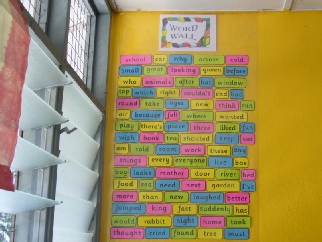 WORD
WALL
school car why across cold
small great looking queen before
who animals after hot window
top which right couldn't end
round take eyes new think run
air because fell where wanted
play there's place three liked fun
wish book tea shouted keep
am told room work these any
things every everyone live
boy looks mother door river bed
food sea need next garden I've
more than now laughed better
jumped king fast suddenly has
would rabbit night home took
thought cried found tree must